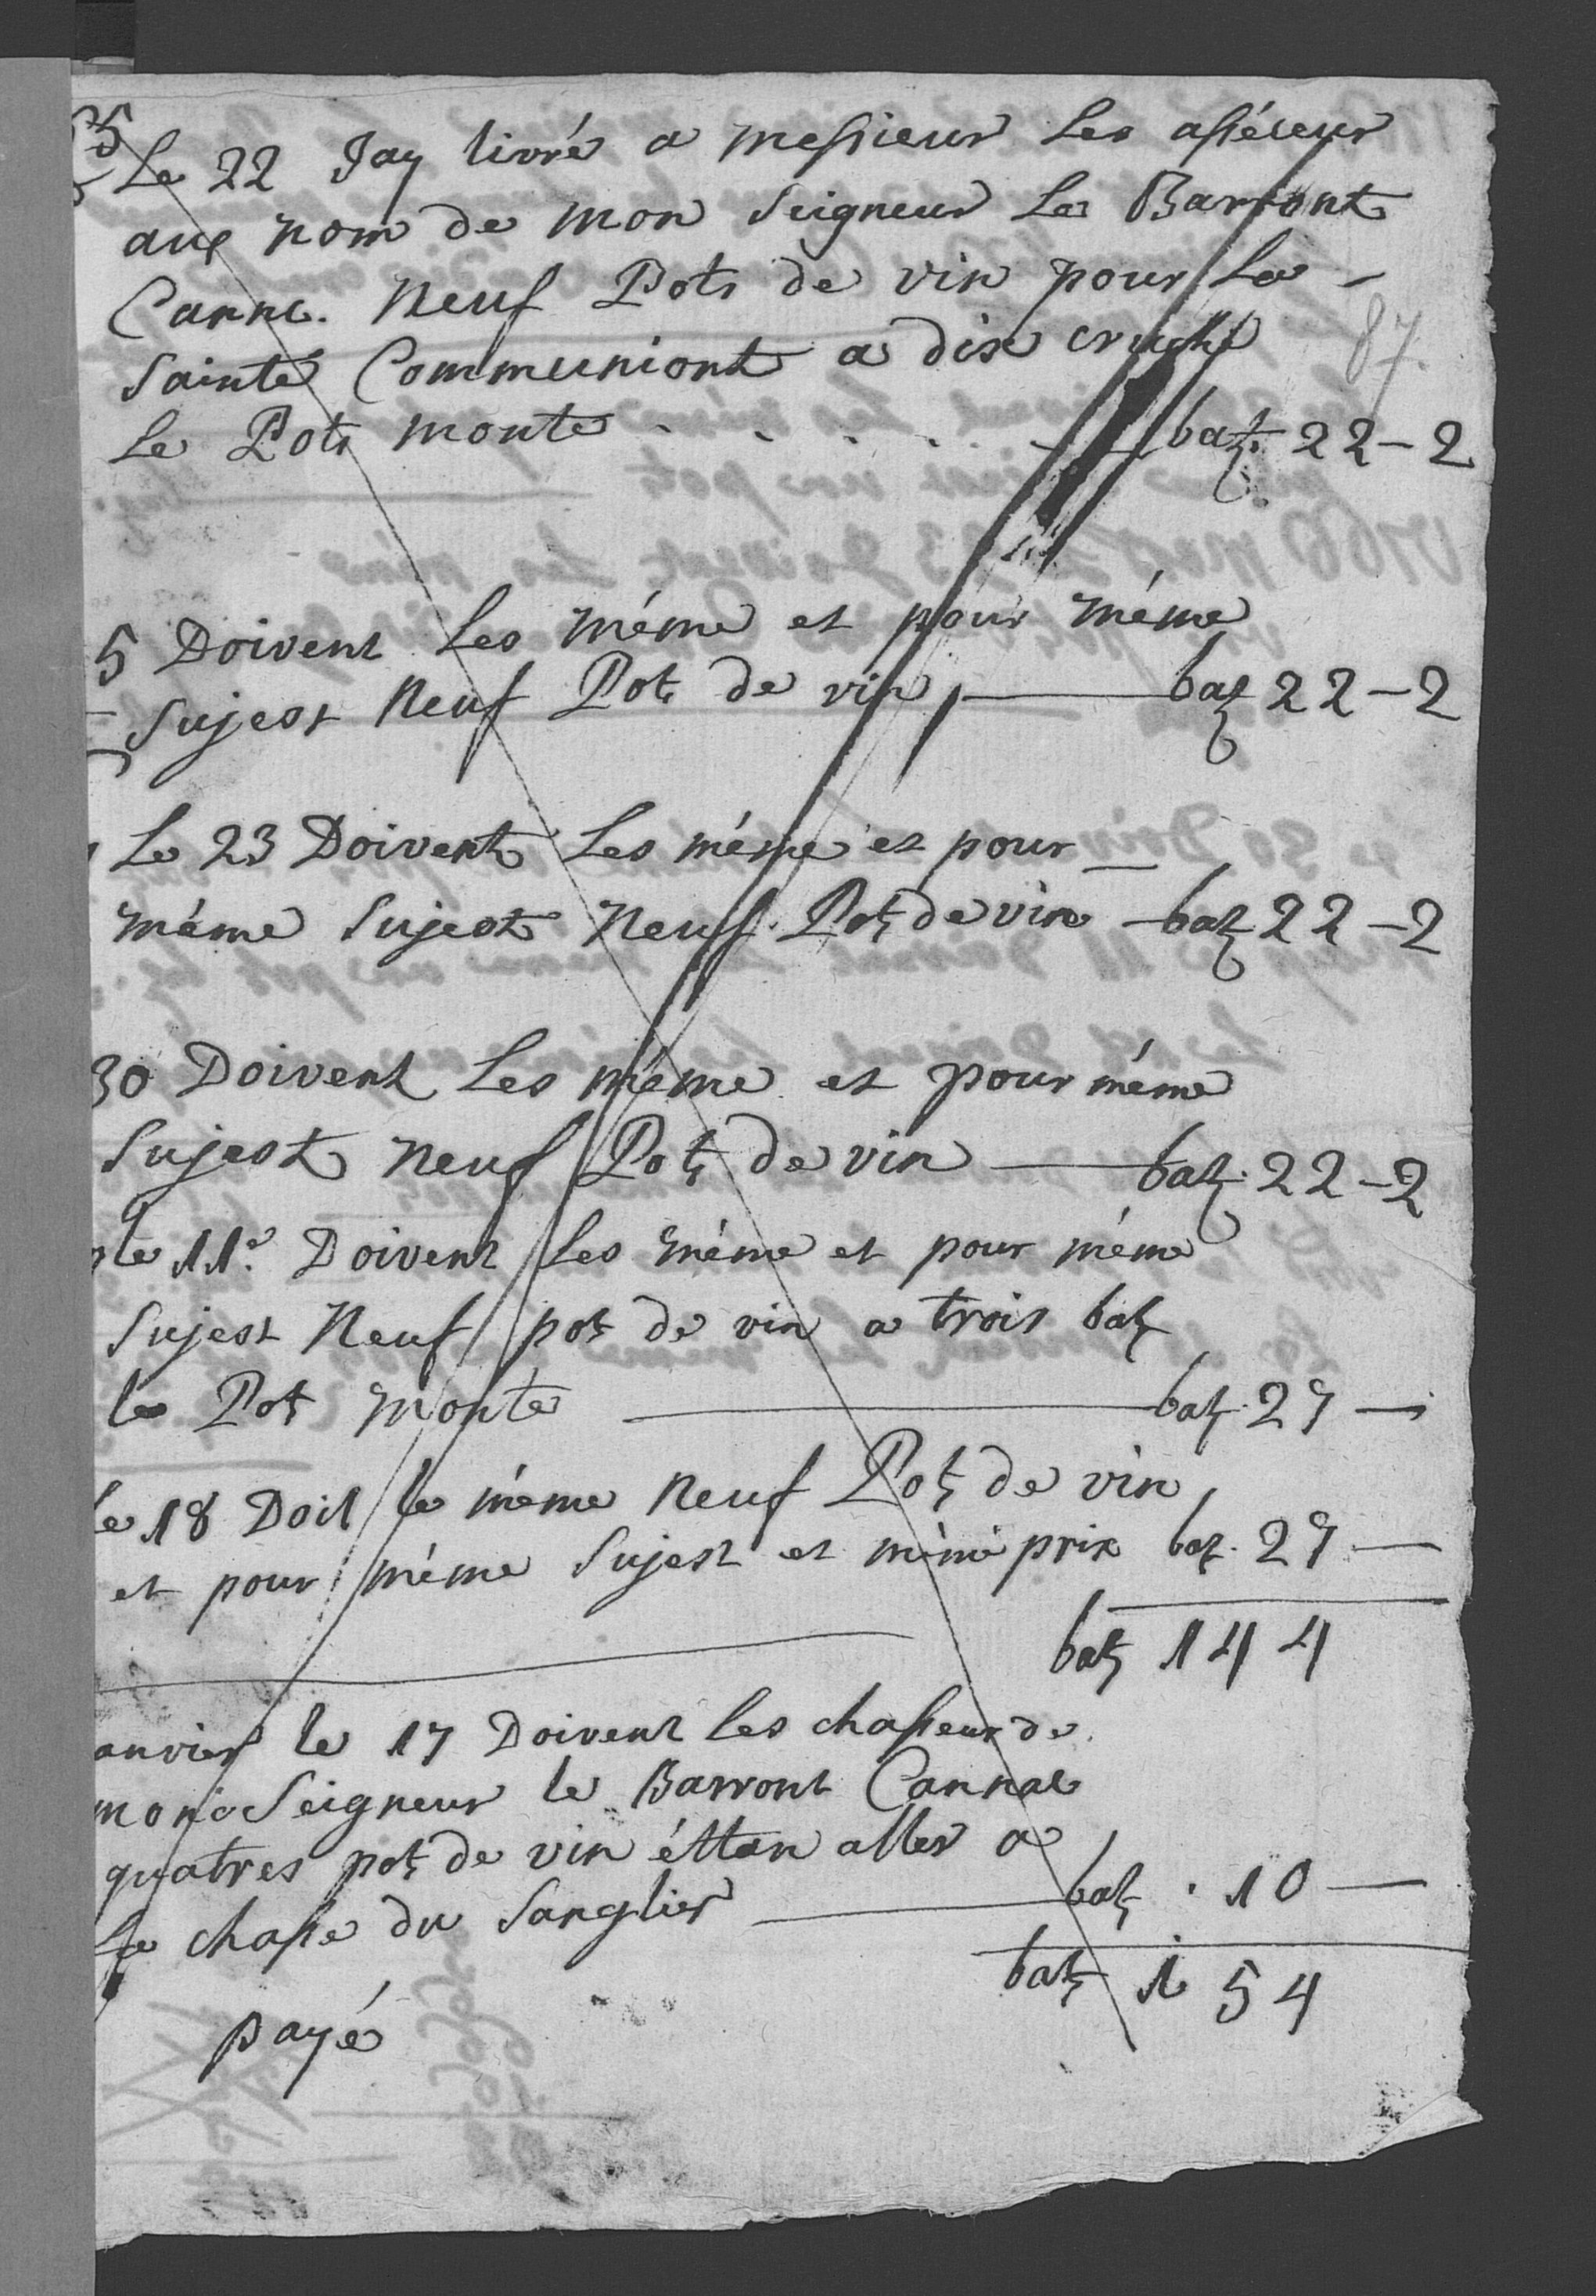 Le 22 Jay livré a messieur Les assésseur
aux nom de mon Seigneur Le Barront
Canne. Neuf Pots de vin pour La -
87
Sainte Communiont a dix cruche
Le Pots monte . . . . . batz 22-2
5 Doivent Les méme et pour méme
Sujest Neuf Pots de vin — batz 22-2
Le 23 Doivent Les méme et pour
méme Sujest Neuf Potz de vin - batz 22-2
30 Doivent Les méme et pour méme
Sujest neuf Potz de vin — batz 22-2
le 11e Doivent Les méme et pour méme
Sujest Neuf potz de vin a trois batz
le Potz monte — batz 27 —
le 18 Doit le méme neuf Potz de vin
et pour méme Sujest et méme prix batz 27 —
batz 144
anvier le 17 Doivent les chasseur de
mon Seigneur le Barront Cannac
quatres potz de vin éttan aller a
La chasse du Sanglier — batz . 10 —
batz 154
payé